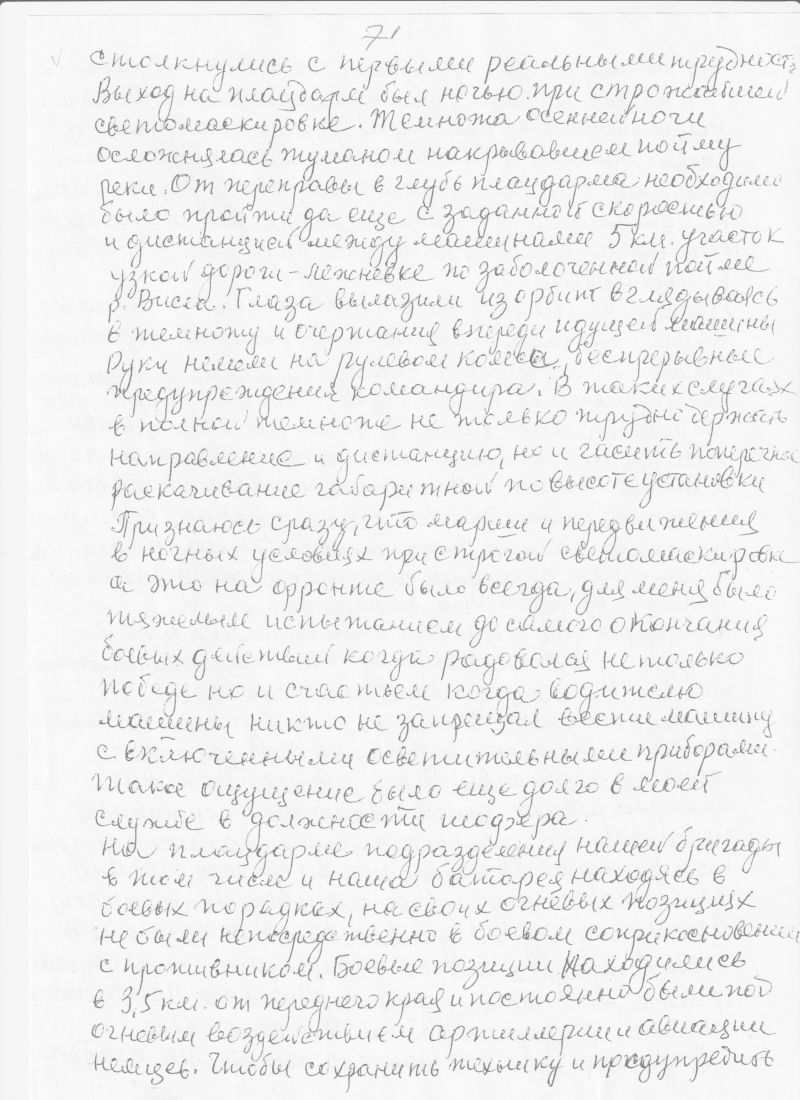 71
столкнулись с первыми реальными трудност
Выход на плацдарм был ночью при строжайшей
светомаскировке. Темнота осенней ночи
осложнялась туманом накрывавшем пойму
реки. От переправы в глубь плацдарма необходимо
было пройти да еще с заданной скоростью
и дистанцией между машинами 5 км. участок
узкой дороги-лежневке по заболоченной пойме
р. Висла. Глаза вылазили из орбит вглядываясь
в темноту и очертания впереди идущей машины
Руки немели на рулевом колесе, беспрерывные
предупреждения командира. В таких случаях
в полной темноте не только трудно держать
направление и дистанцию, но и гасить поперечное
раскачивание габаритной по высоте установки
Признаюсь сразу, что марши и передвижения
в ночных условиях при строгой светомаскировке
а это на фронте было всегда, для меня было
тяжелым испытанием до самого окончания
боевых действий когда радовался не только
победе но и счастьем когда водителю
машины никто не запрещал вести машину
с включенными осветительными приборами.
Такое ощущение было еще долго в моей
службе в должности шофера.
На плацдарме подразделения нашей бригады
в том числе и наша батарея находясь в
боевых порядках, на своих огневых позициях
не были непосредственно в боевом соприкосновении
с противником. Боевые позиции находились
в 3,5 км. от переднего края и постоянно были под
огневым воздействием артиллерии и авиации
немцев. Чтобы сохранить технику и предупредить